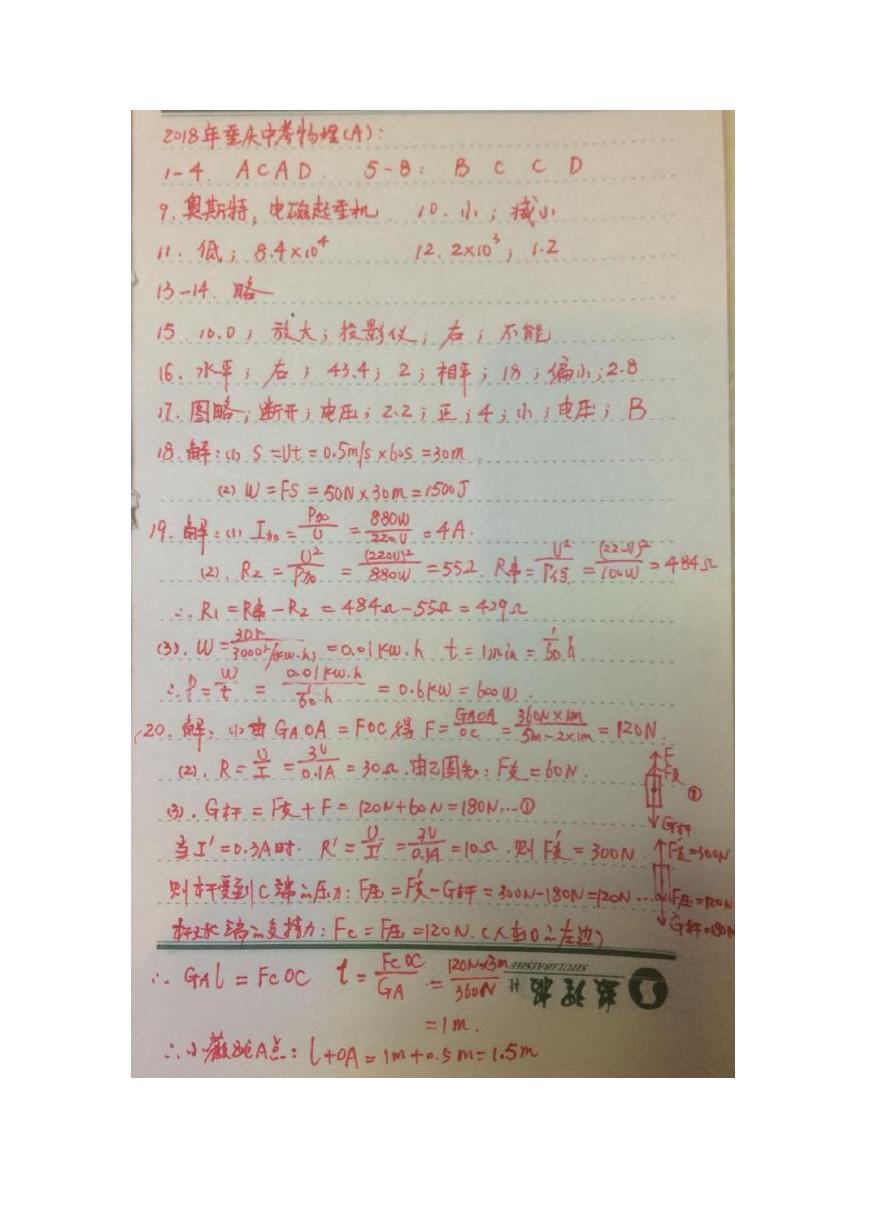 2018年重庆中考物理(A):
1-4. ACAD. 5-8: B C C D
9. 奥斯特; 电磁起重机 10. 小; 减小
11. 低; 8.4×10⁴ 12. 2×10³; 1.2
13-14. 略
15. 10.0; 放大; 投影仪; 右; 不能
16. 水平; 右; 43.4; 2; 相平; 18; 偏小; 2.8
17. 图略; 断开; 电压; 2.2; 正; 4; 小; 电压; B
18. 解: (1) S=Ut=0.5m/s×60s=30m
(2) W=FS=50N×30m=1500J
19. 解: (1) I加=P加/U=880W/220V=4A.
(2). R2=U²/P加=(220V)²/880W=55Ω. R串=U²/P保=(220V)²/100W=484Ω
∴ R1=R串-R2=484Ω-55Ω=429Ω
(3). W=30r/3000r/(kw·h)=0.01kw·h t=1min=1/60 h
∴ P=W/t=0.01kw·h/1/60 h=0.6kw=600W.
20. 解: (1) 由GAOA=FOC得 F=GAOA/OC=360N×1m/5m-2×1m=120N.
(2). R=U/I=3V/0.1A=30Ω. 由乙图知: F支=60N.
(3). G杆=F支+F=120N+60N=180N...①
当I'=0.3A时. R'=U/I'=3V/0.3A=10Ω. 则F支'=300N
则杆受到C端的压力: F压=F支'-G杆=300N-180N=120N...
杆对C端的支持力: Fc=F压=120N. (人在O的左边)
∴ GAl=FcOC l=FcOC/GA=120N×3m/360N
=1m.
∴ 小薇距A点: l+OA=1m+0.5m=1.5m
F
F支
①
G杆
F支'=300N
F压=120N
G杆=180N